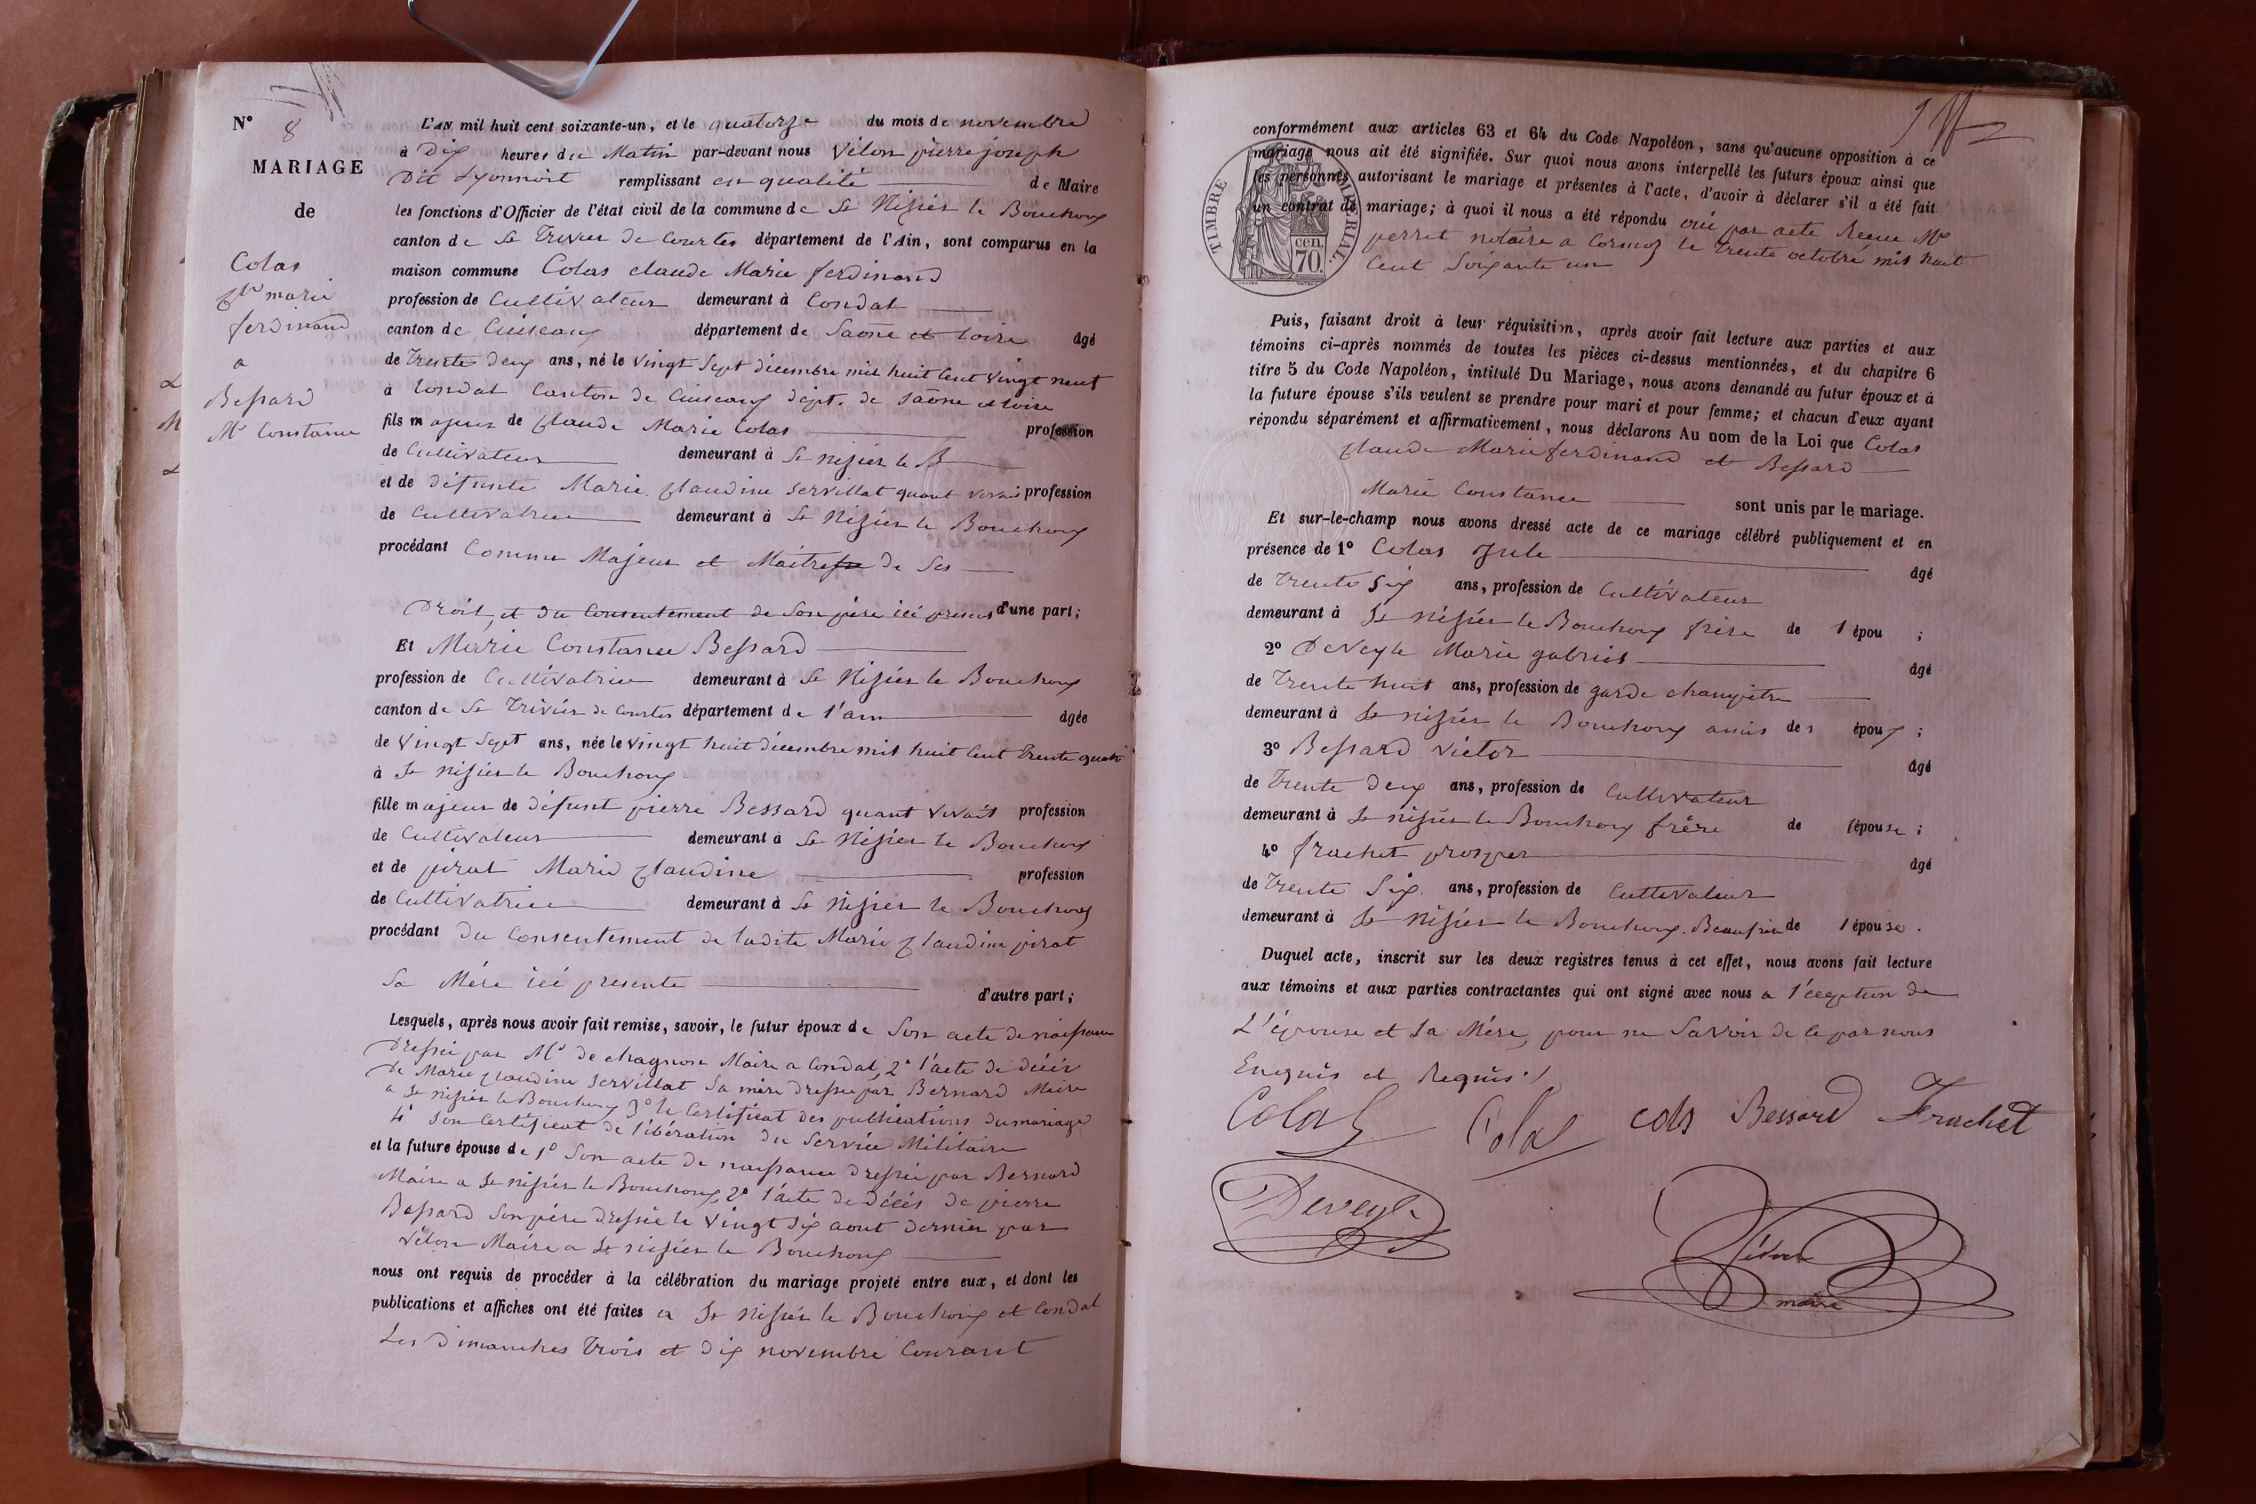 N° 8
MARIAGE
de
Colas
Cde marie
ferdinand
a
Bessard
Me Constance
L'AN mil huit cent soixante-un, et le quatorze du mois de novembre
à Dix heures du Matin par-devant nous Vélon pierre joseph
Dit Lyonnois remplissant en qualité de Maire
les fonctions d'Officier de l'état civil de la commune de St Nizier le Bouchoux
canton de St Trivier de Courtes département de l'Ain, sont comparus en la
maison commune Colas claude Marie ferdinand
profession de Cultivateur demeurant à Condal
canton de Cuiseaux département de Saone et loire âgé
de Trente deux ans, né le vingt Sept décembre mil huit Cent vingt neuf
à Condal Canton de Cuiseaux dépt. de Saône et loire
fils majeur de Claude Marie Colas profession
de Cultivateur demeurant à St nizier le B
et de défunte Marie Claudine Servillat quant vivais profession
de Cultivatrice demeurant à St Nizier le Bouchoux
procédant Comme Majeur et Maitresse de Ses
Droit, et du Consentement de Son père ici présens d'une part;
Et Marie Constance Bessard
profession de Cultivatrice demeurant à St Nizier le Bouchoux
canton de St Trivier de Courtes département de l'ain âgée
de Vingt Sept ans, née le vingt huit décembre mil huit Cent Trente quatre
à St nizier le Bouchoux
fille majeur de défunt pierre Bessard quant vivait profession
de Cultivateur demeurant à St Nizier le Bouchoux
et de pirat Marie Claudine profession
de Cultivatrice demeurant à St Nizier le Bouchoux
procédant du Consentement de ladite Marie Claudine pirat
Sa Mére ici presente d'autre part;
Lesquels, après nous avoir fait remise, savoir, le futur époux de Son acte de naissance
Dressée par Mr de chagnon Maire a Condal, 2° l'acte de décés
de Marie Claudine Servillat Sa mère dressé par Bernard Maire
a St nizier le Bouchoux 3° le Certificat des publications du mariage
4° Son Certificat de libération du Service Militaire
et la future épouse de 1° Son acte de naissance dressée par Bernard
Maire a St nizier le Bouchoux, 2° l'acte de décés de pierre
Bessard Son père dressé le Vingt Six aout dernier par
Vélon Maire a St nizier le Bouchoux
nous ont requis de procéder à la célébration du mariage projeté entre eux, et dont les
publications et affiches ont été faites a St nizier le Bouchoux et Condal
Les Dimanches Trois et dix novembre Courant
conformément aux articles 63 et 64 du Code Napoléon, sans qu'aucune opposition à ce
mariage nous ait été signifiée. Sur quoi nous avons interpellé les futurs époux ainsi que
les personnes autorisant le mariage et présentes à l'acte, d'avoir à déclarer s'il a été fait
un contrat de mariage; à quoi il nous a été répondu oui par acte Recue Me
perret notaire a Cormoz le Trente octobre mil huit
Cent Soixante un
TIMBRE IMPERIAL.
cen.
70.
Puis, faisant droit à leur réquisition, après avoir fait lecture aux parties et aux
témoins ci-après nommés de toutes les pièces ci-dessus mentionnées, et du chapitre 6
titre 5 du Code Napoléon, intitulé Du Mariage, nous avons demandé au futur époux et à
la future épouse s'ils veulent se prendre pour mari et pour femme; et chacun d'eux ayant
répondu séparément et affirmativement, nous déclarons Au nom de la Loi que Colas
Claude Marie ferdinand et Bessard
Marie Constance sont unis par le mariage.
Et sur-le-champ nous avons dressé acte de ce mariage célébré publiquement et en
présence de 1° Colas Jule âgé
de Trente Six ans, profession de Cultivateur
demeurant à St nizier le Bouchoux frère de l épou ;
2° Deveyle Marie gabriel âgé
de Trente huit ans, profession de garde champêtre
demeurant à St nizier le Bouchoux amis des époux ;
3° Bessard victor âgé
de Trente deux ans, profession de Cultivateur
demeurant à St nizier le Bouchoux frère de l'épouse ;
4° frachet prosper âgé
de Trente Six ans, profession de Cultivateur
demeurant à St nizier le Bouchoux. Beaufrere de l épouse.
Duquel acte, inscrit sur les deux registres tenus à cet effet, nous avons fait lecture
aux témoins et aux parties contractantes qui ont signé avec nous a l'éception de
L'épouse et Sa Mère, pour ne Savoir de ce par nous
Enquis et Requis ./.
Colas Colas Colas Bessard Frachet
Deveyle
Vélon
maire